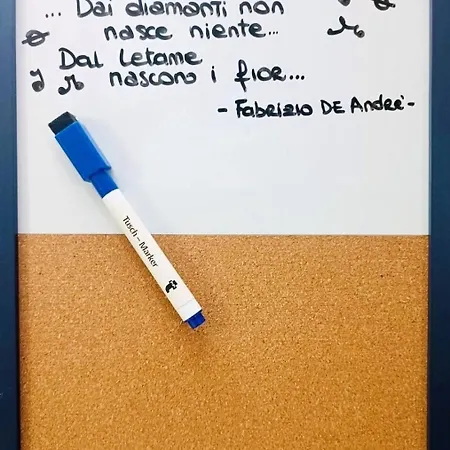 ... Dai diamanti non
nasce niente...
Dal Letame
nascono i fior...
- Fabrizio DE Andrè -
Tusch-Marker